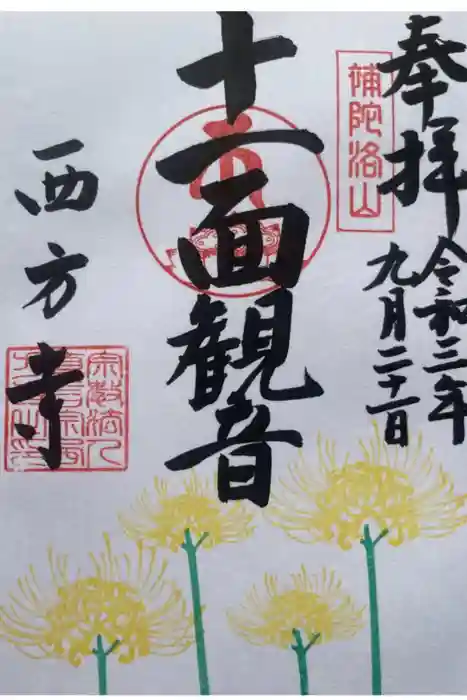 奉拝
補陀洛山
令和三年
九月二十一日
十一面観音
西方寺